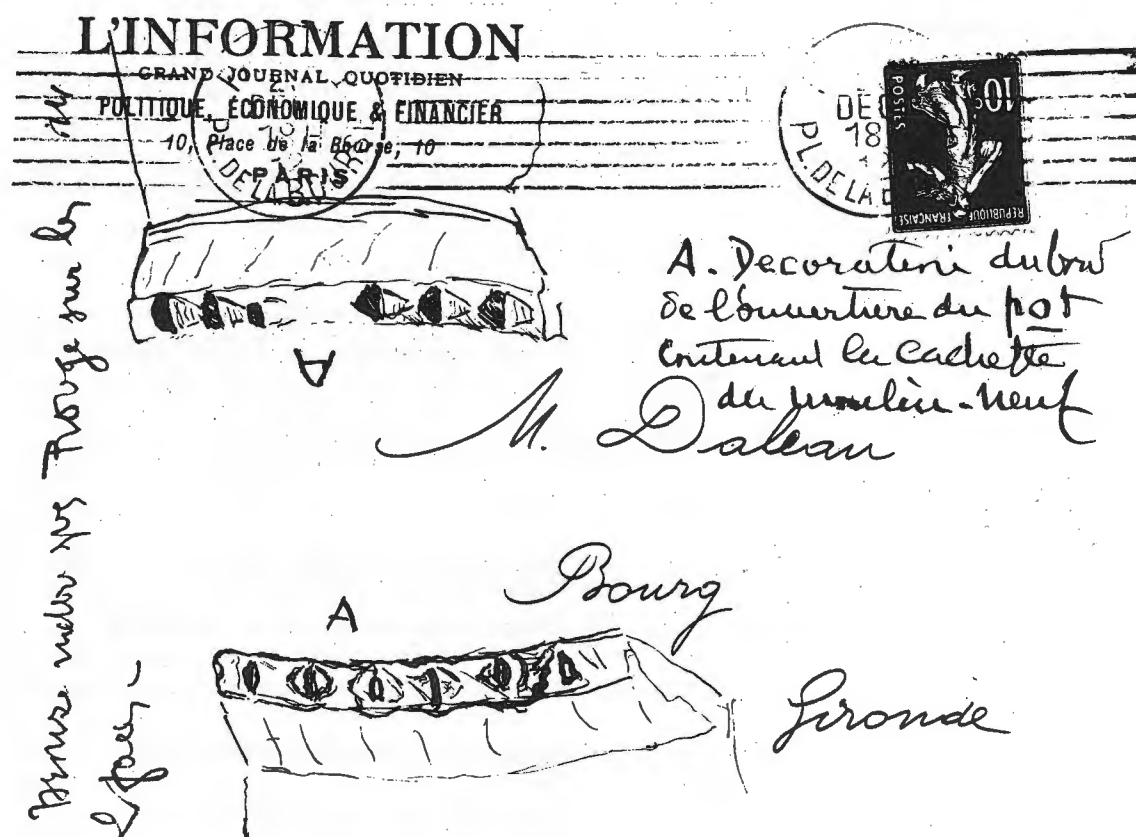 L'INFORMATION
GRAND JOURNAL QUOTIDIEN
POLITIQUE, ÉCONOMIQUE & FINANCIER
10, Place de la Bourse, 10
PARIS
DE LA B
DEC
18
PL. DE LA B
10
POSTES
REPUBLIQUE FRANÇAISE
A. Decoration du bord
de l'ouverture du pot
contenant la cachette
du moulin-neuf
M. Daleau
A
Bourg
A
Gironde
Rouge sur les